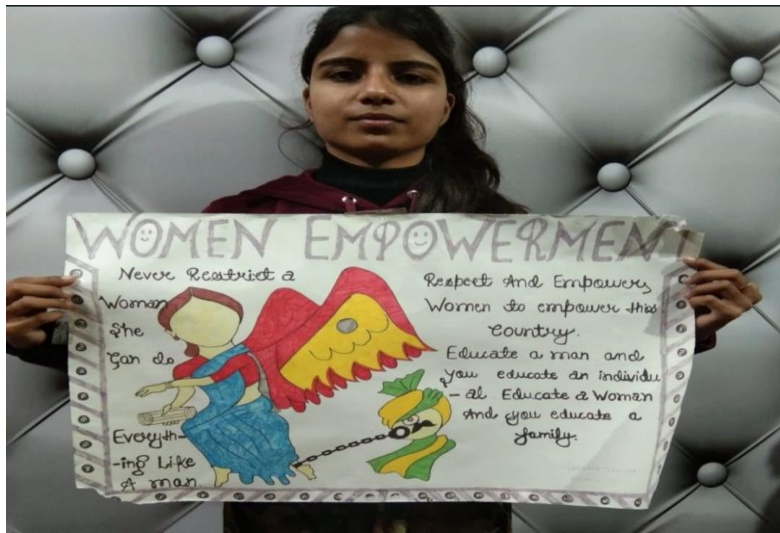 WOMEN EMPOWERMENT
Never Restrict a
Woman
She
Can do
Everyth-
-ing Like
A man.
Respect And Empowers
Women to empower this
Country.
Educate a man and
you educate an individu
-al. Educate a Woman
And you educate a
family.